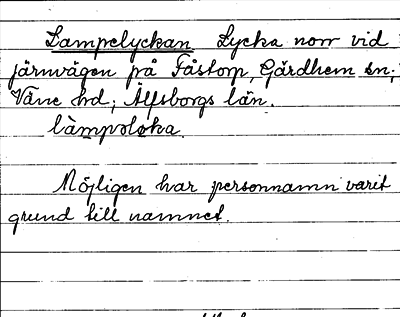 Lampelyckan Lycka norr vid
järnvägen på Fåstorp, Gärdhem sn;
Väne hd; Älfsborgs län.
làmpoloka.
Möjligen har personnamn varit
grund till namnet.